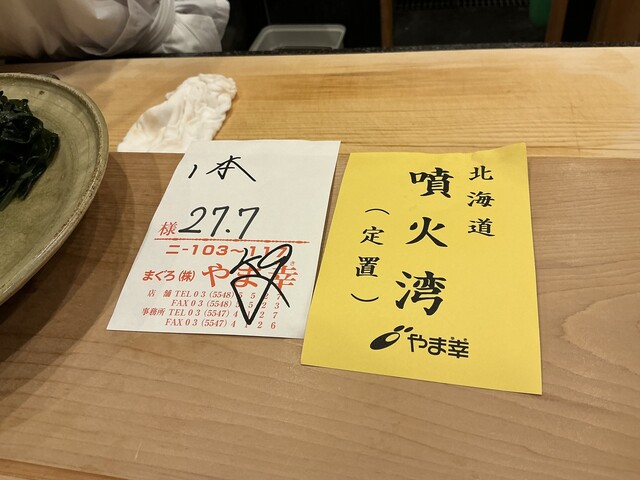 1本
様 27.7
ニ-103〜117
kg
まぐろ(株)やま幸
店 舗 TEL03(5548)5527
FAX03(5548)5523
事務所 TEL03(5547)4127
FAX03(5547)4126
北海道
噴火湾
(定置)
やま幸